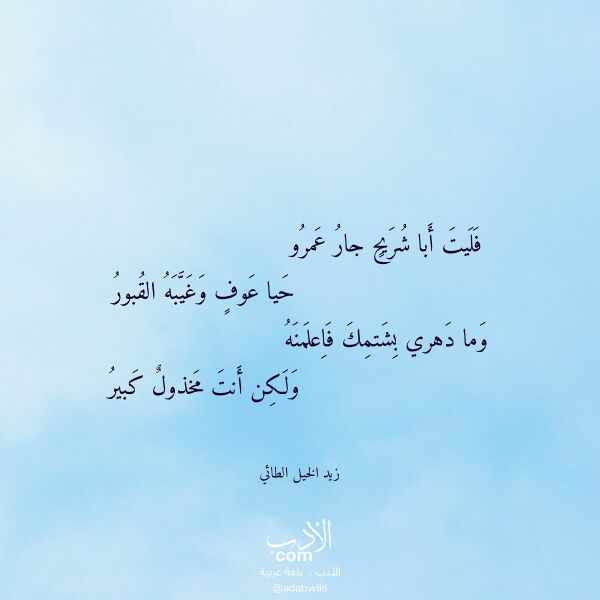 فَلَيتَ أَبا شُرَيحٍ جارُ عَمرُو
حَيا عَوفٍ وَغَيَّبَهُ القُبورُ
وَما دَهري بِشَتمِكَ فَاِعلَمَنهُ
وَلَكِن أَنتَ مَخذولٌ كَبيرُ
زيد الخيل الطائي
الأدب
com
الأدب .. بلغة عربية
@adabwiki